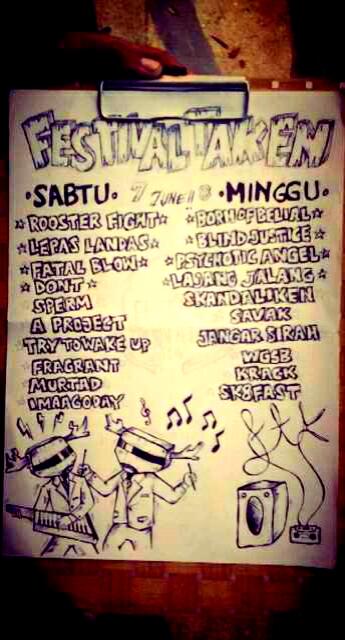 FESTIVAL TAKEN
•SABTU• 7 JUNE 8 •MINGGU•
ROOSTER FIGHT
LEPAS LANDAS
FATAL BLOW
DONT
SPERM
A PROJECT
TRY TO WAKE UP
FRAGRANT
MURTAD
IMAAGODAY
BORN OF BELIAL
BLIND JUSTICE
PSYCHOTIC ANGEL
LAJANG JALANG
SKANDALIKEN
SAVAK
JANGAR SIRAH
WGSB
KRACK
SK8FAST